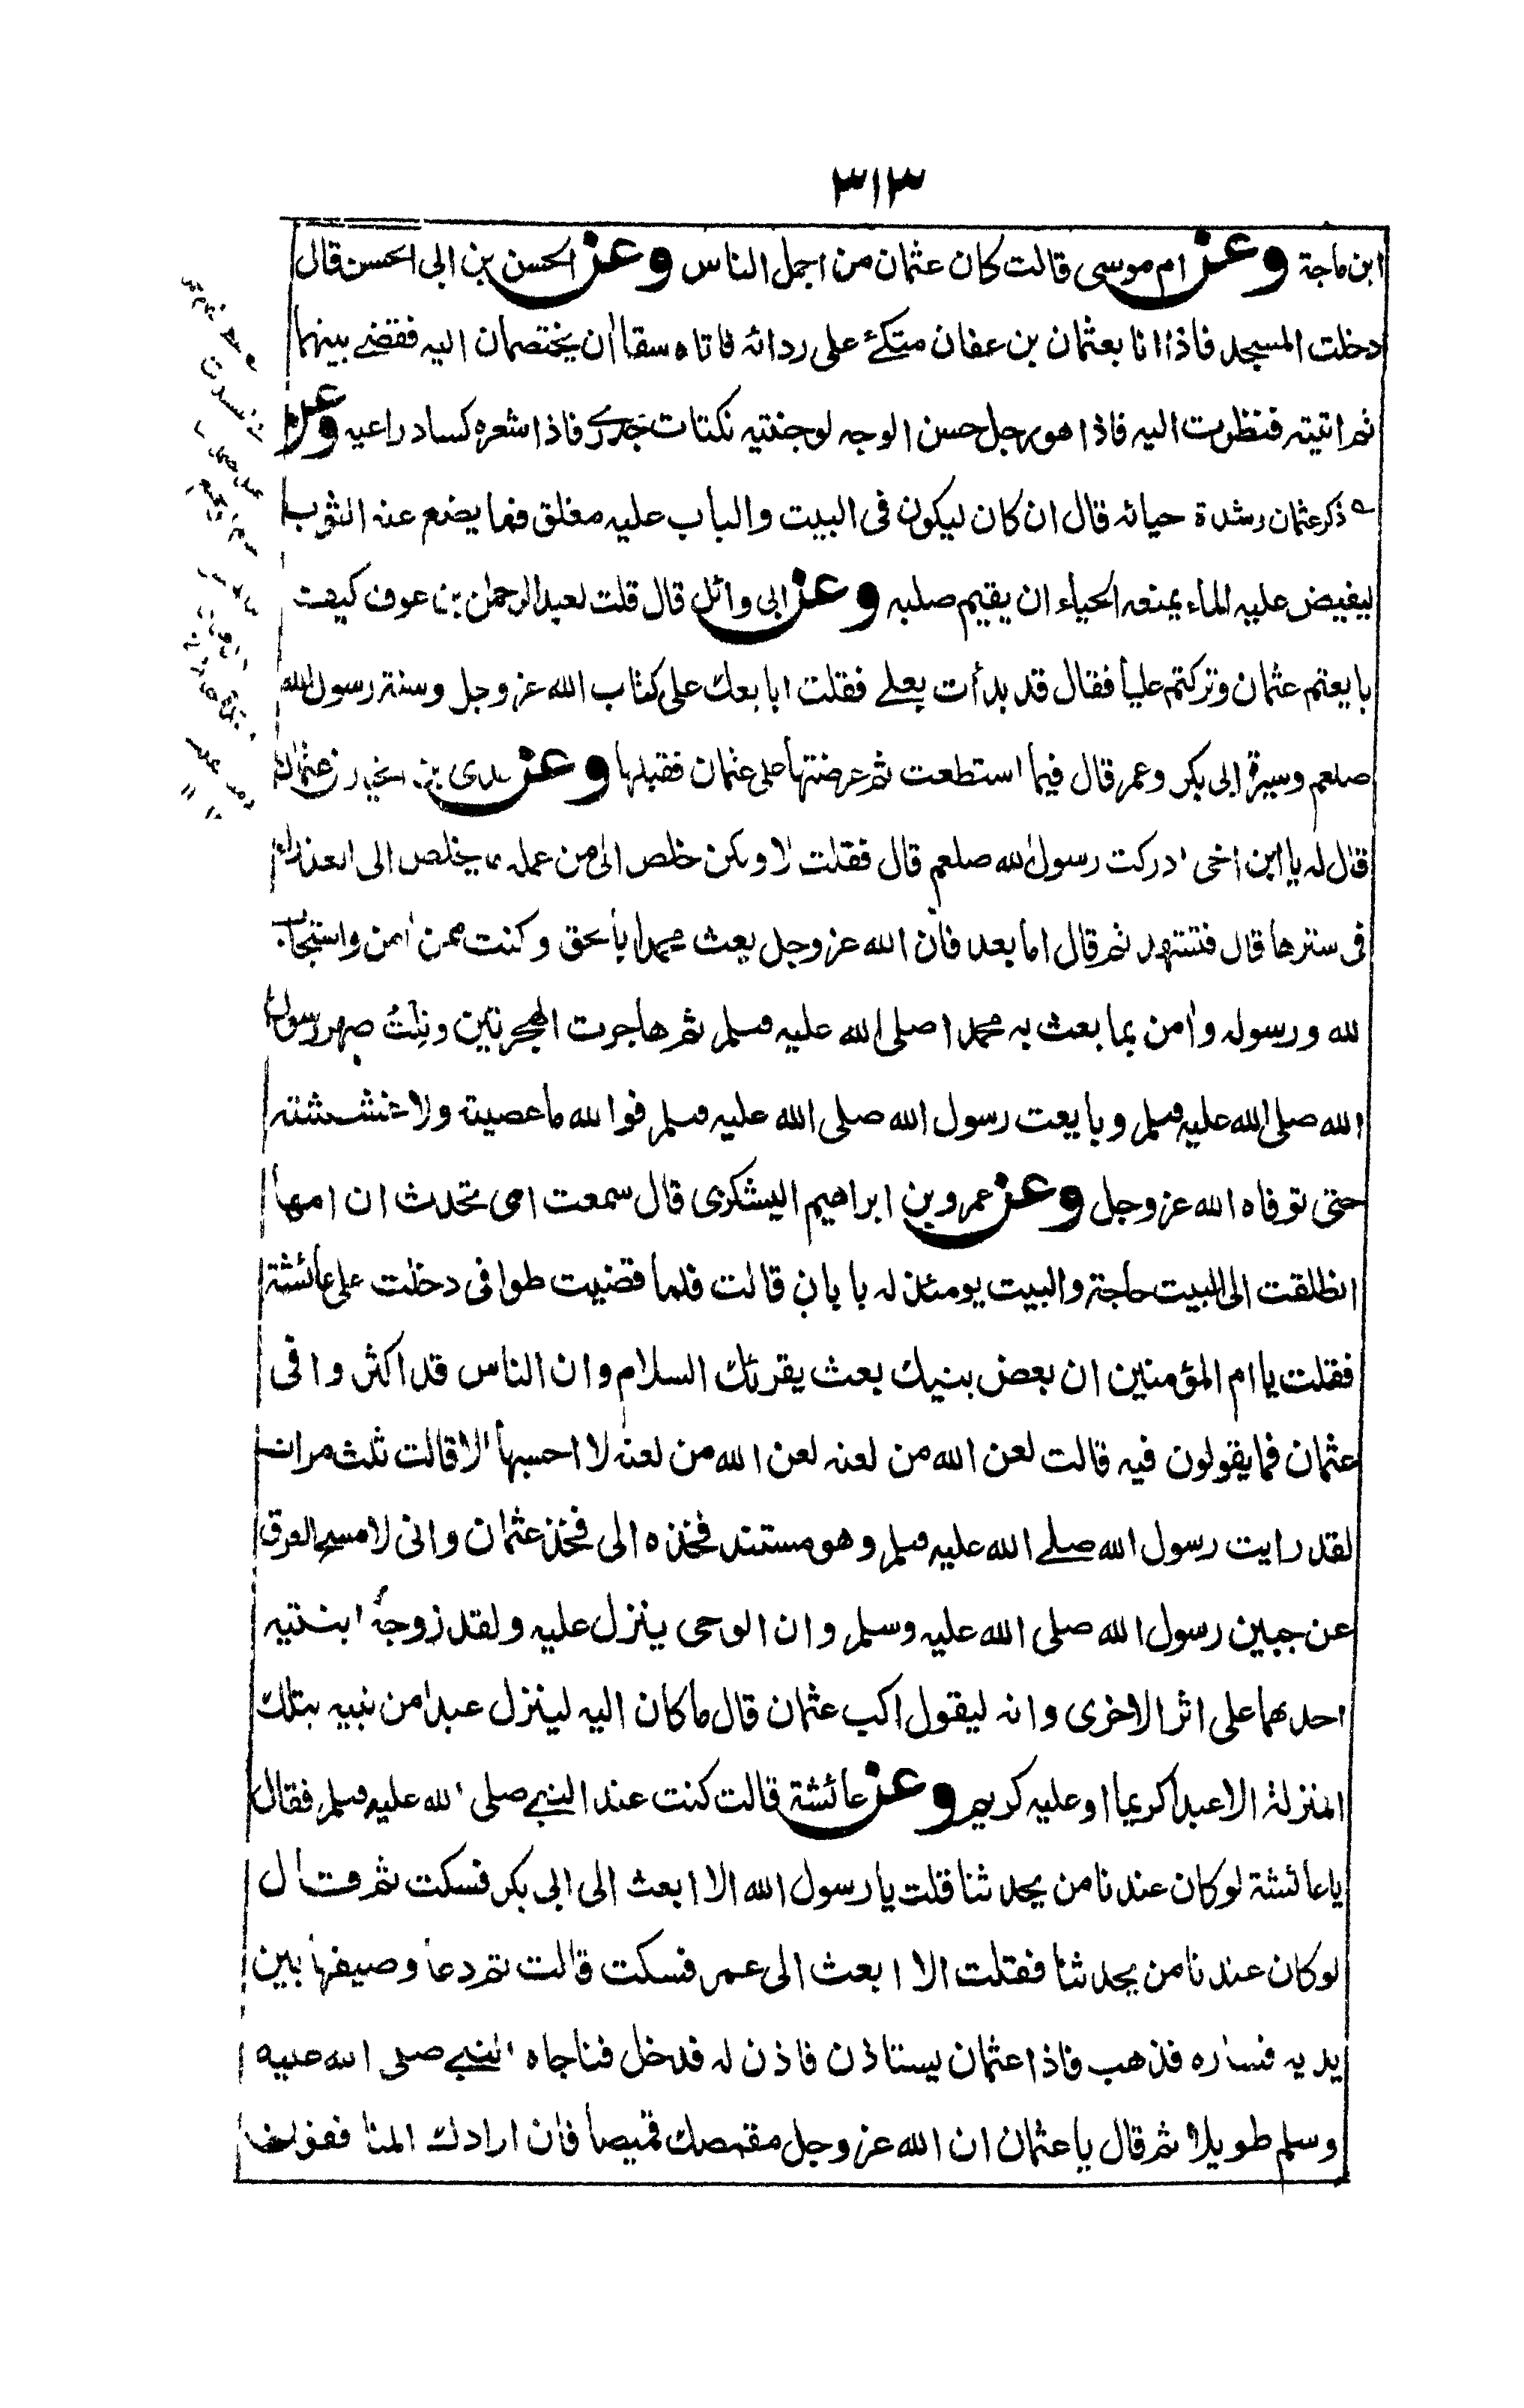 ٣١٣
ابن ماجة وعن ام موسى قالت كان عثمان من اجمل الناس وعن الحسن بن ابى الحسن قال
دخلت المسجد فاذا انا بعثمان بن عفان متكئ على ردائه فاتاه سقاان يختصمان اليه فقضے بينهما
ثم اتيته فنظرت اليه فاذا هو رجل حسن الوجه لوجنتيه نكتات جدرے فاذا شعره كسا دراعيه وعن
ذكر عثمان وشدة حيائه قال ان كان ليكون فى البيت والباب عليه مغلق فما يضع عنه الثوب
ليفيض عليه الماء يمنعه الحياء ان يقيم صلبه وعن ابى وائل قال قلت لعبد الرحمٰن بن عوف كيف
بايعتم عثمان وتركتم عليا فقال قد بدأت بعلے فقلت ابابعك على كتاب الله عز وجل وسنة رسول الله
صلعم وسيرة ابى بكر وعمر قال فيما استطعت ثم عرضتها على عثمان فقبلها وعن عدى بن الخيار عثمان
قال له يا ابن اخى ادركت رسول الله صلعم قال فقلت لا ولكن خلص الى من عمله ما يخلص الى العذراء
فى سترها قال فتشهد ثم قال اما بعد فان الله عز وجل بعث محمدا بالحق وكنت ممن اٰمن واستجاب
لله ورسوله واٰمن بما بعث به محمدا صلى الله عليه وسلم ثم هاجرت الهجرتين ونلت صهر رسول
الله صلى الله عليه وسلم وبايعت رسول الله صلى الله عليه وسلم فوالله ما عصيته ولا غششته
حتى توفاه الله عز وجل وعن عمرو بن ابراهيم اليشكرى قال سمعت امى تحدث ان امها
انطلقت الى البيت حاجة والبيت يومئذ له بابان قالت فلما قضيت طوافى دخلت على عائشة
فقلت يا ام المؤمنين ان بعض بنيك بعث يقرئك السلام وان الناس قد اكثروا فى
عثمان فما يقولون فيه قالت لعن الله من لعنه لعن الله من لعنه لا احسبها الا قالت ثلث مرات
لقد رايت رسول الله صلے الله عليه وسلم وهو مستند فخذه الى فخذ عثمان وانى لا مسح العرق
عن جبين رسول الله صلى الله عليه وسلم وان الوحى ينزل عليه ولقد زوجه ابنتيه
احدىهما على اثر الاخرى وانه ليقول اكب عثمان قال ما كان اليه لينزل عبدا من نبيه بتلك
المنزلة الا عبدا كريما او عليه كريم وعن عائشة قالت كنت عند النبے صلى الله عليه وسلم فقال
يا عائشة لو كان عندنا من يحدثنا قلت يا رسول الله الا ابعث الى ابى بكر فسكت ثم قال
لو كان عندنا من يحدثنا فقلت الا ابعث الى عمر فسكت قالت ثم دعا وصيفها بين
يديه فساره فذهب فاذا عثمان يستاذن فاذن له فدخل فناجاه النبے صلى الله عليه
وسلم طويلا ثم قال يا عثمان ان الله عز وجل مقمصك قميصا فان ارادك المنافقون